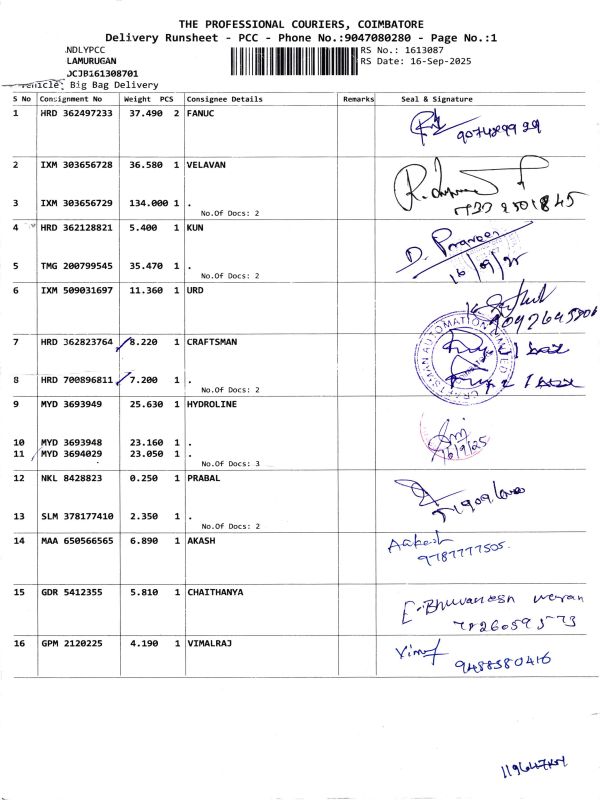 THE PROFESSIONAL COURIERS, COIMBATORE
Delivery Runsheet - PCC - Phone No.:9047080280 - Page No.:1
NDLYPCC RS No.: 1613087
LAMURUGAN RS Date: 16-Sep-2025
DCJB161308701
Vehicle: Big Bag Delivery
S No Consignment No Weight PCS Consignee Details Remarks Seal & Signature
1 HRD 362497233 37.490 2 FANUC
2 IXM 303656728 36.580 1 VELAVAN
3 IXM 303656729 134.000 1 .
No.Of Docs: 2
4 HRD 362128821 5.400 1 KUN
D. Praveen
16/09/25
5 TMG 200799545 35.470 1 .
No.Of Docs: 2
6 IXM 509031697 11.360 1 URD
7 HRD 362823764 8.220 1 CRAFTSMAN
CRAFTSMAN AUTOMATION
8 HRD 700896811 7.200 1 .
No.Of Docs: 2
9 MYD 3693949 25.630 1 HYDROLINE
10 MYD 3693948 23.160 1 .
16/9/25
11 MYD 3694029 23.050 1 .
No.Of Docs: 3
12 NKL 8428823 0.250 1 PRABAL
13 SLM 378177410 2.350 1 .
No.Of Docs: 2
14 MAA 650566565 6.890 1 AKASH
Aakash
9787777505.
15 GDR 5412355 5.810 1 CHAITHANYA
16 GPM 2120225 4.190 1 VIMALRAJ
9488580416